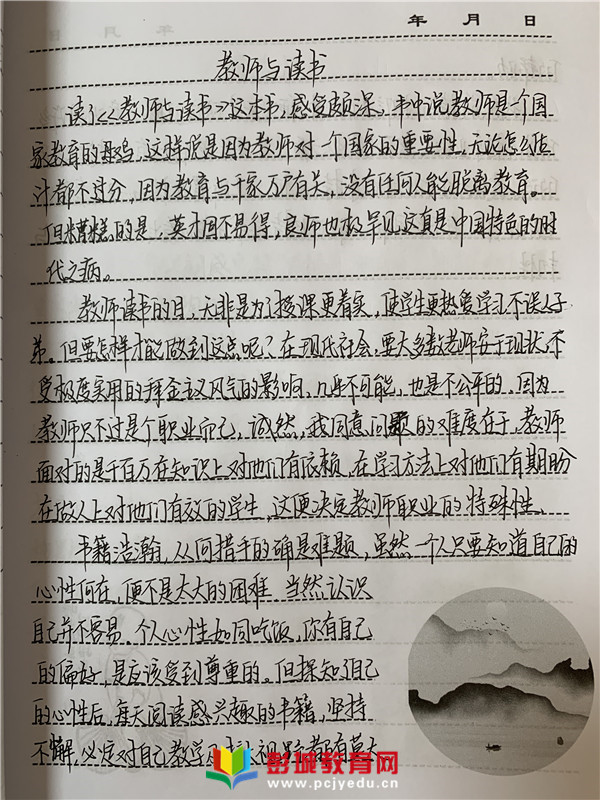 年 月 日
教师与读书
读了<<教师与读书>>这本书,感受颇深,书中说教师是一个国
家教育的母鸡,这样说是因为教师对一个国家的重要性,无论怎么估
计都不过分,因为教育与千家万户有关,没有任何人能脱离教育。
但糟糕的是,英才固不易得,良师也极罕见,这真是中国特色的时
代之病。
教师读书的目,无非是为了授课更着实,使学生更热爱学习不误人子
弟。但要怎样才能做到这点呢?在现代社会,要大多数老师安于现状,不
受极度实用的拜金主义风气的影响,几乎不可能,也是不公平的,因为
教师只不过是个职业而已,诚然,我同意问题的难度在于,教师
面对的是千百万在知识上对他们有依赖,在学习方法上对他们有期盼
在做人上对他们有效的学生,这便决定教师职业的特殊性。
书籍浩瀚,从何措手的确是难题,虽然一个人只要知道自己的
心性何在,便不是太大的困难,当然认识
自己并不容易,个人心性如同吃饭,你有自己
的偏好,是应该受到尊重的。但探知了自己
的心性后,每天阅读感兴趣的书籍,坚持
不懈,必定对自己教学 视野都有莫大
彭城教育网
www.pcjyedu.cn